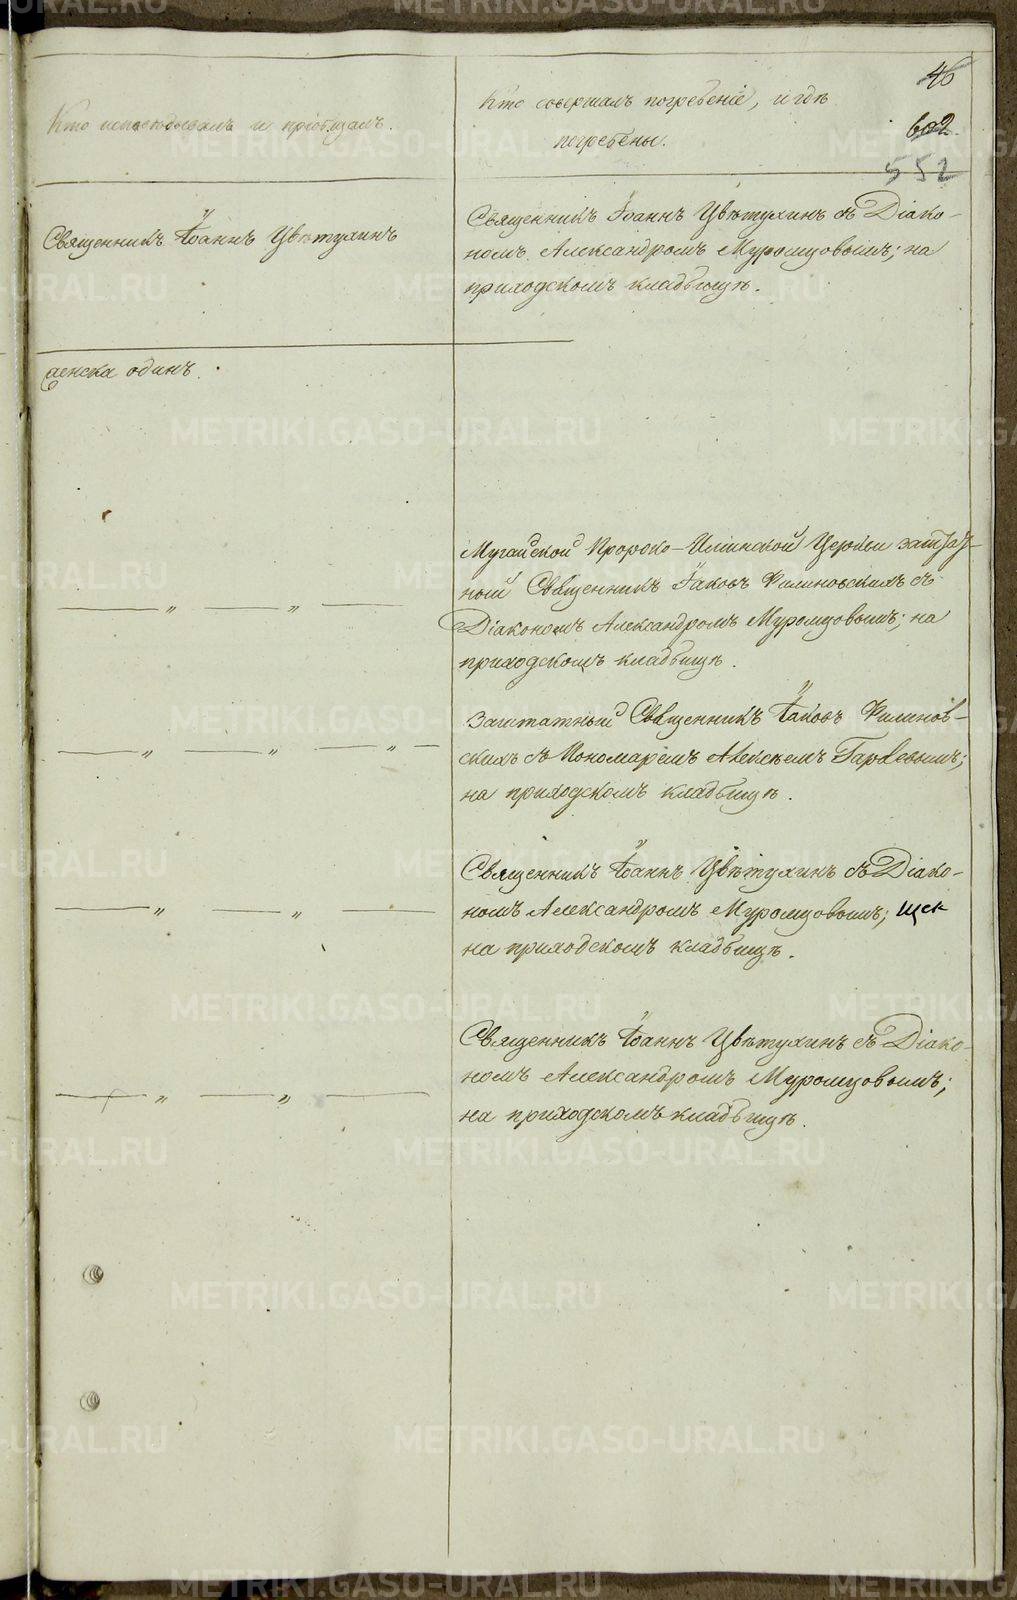 46
602.
552
Кто исповѣдывалъ и пріобщалъ.
Кто совершалъ погребеніе, и гдѣ
погребены.
Священникъ Іоаннъ Цвѣтухинъ
Священникъ Іоаннъ Цвѣтухинъ съ Діако-
номъ Александромъ Муромцовымъ; на
приходскомъ кладбищѣ.
женска одинъ.
Мугайской Пророко-Илiинской Церкви заштат-
ный Священникъ Іаковъ Филиновскихъ съ
Діакономъ Александромъ Муромцовымъ; на
приходскомъ кладбищѣ.
— " — " —
Заштатный Священникъ Іаковъ Филинов-
скихъ съ Пономаремъ Алексѣемъ
на приходскомъ кладбищѣ.
— " — " — " —
Священникъ Іоаннъ Цвѣтухинъ съ Діако-
номъ Александромъ Муромцовымъ;
на приходскомъ кладбищѣ.
— " — " —
Священникъ Іоаннъ Цвѣтухинъ съ Діако-
номъ Александромъ Муромцовымъ;
на приходскомъ кладбищѣ.
— " — " —
METRIKI.GASO-URAL.RU